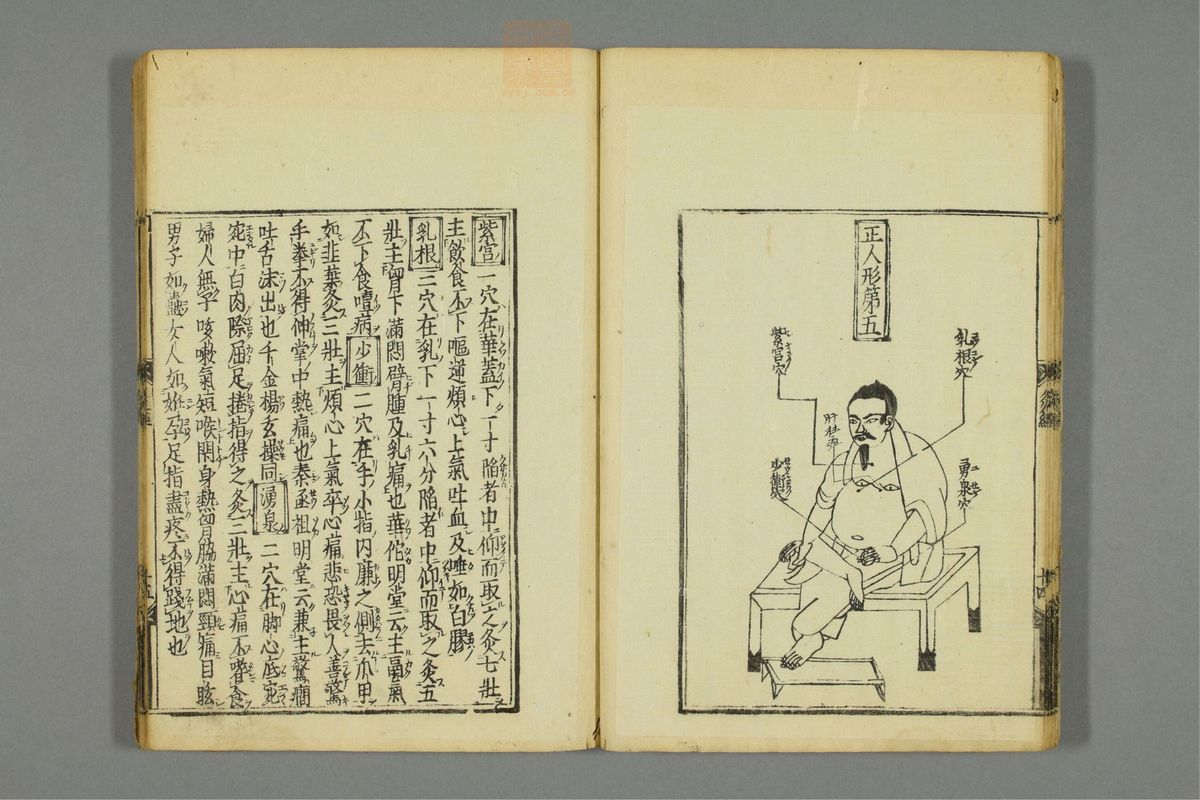 正人形第五
乳根穴
紫宮穴
勇泉穴
少衝穴
紫宮 一穴在華蓋下一寸陷者中仰而取之灸七壯
主飲食不下嘔逆煩心上氣吐血及唾如白膠
乳根 二穴在乳下一寸六分陷者中仰而取之灸五
壯主胷下滿悶臂腫及乳痛也華佗明堂云主鬲氣
不下食噎病 少衝 二穴在手小指内廉之側去爪甲
如韭葉灸三壯主煩心上氣卒心痛悲恐畏人善驚
手拳不得伸掌中熱痛也秦丞祖明堂云兼主驚癎
吐舌沫出也千金楊玄操同 湧泉 二穴在脚心底宛
宛中白肉際屈足捲指得之灸三壯主心痛不嗜食
婦人無子咳嗽氣短喉閇身熱胷脇滿悶頸痛目眩
男子如蠱女人如姙孕足指盡疼不得踐地也